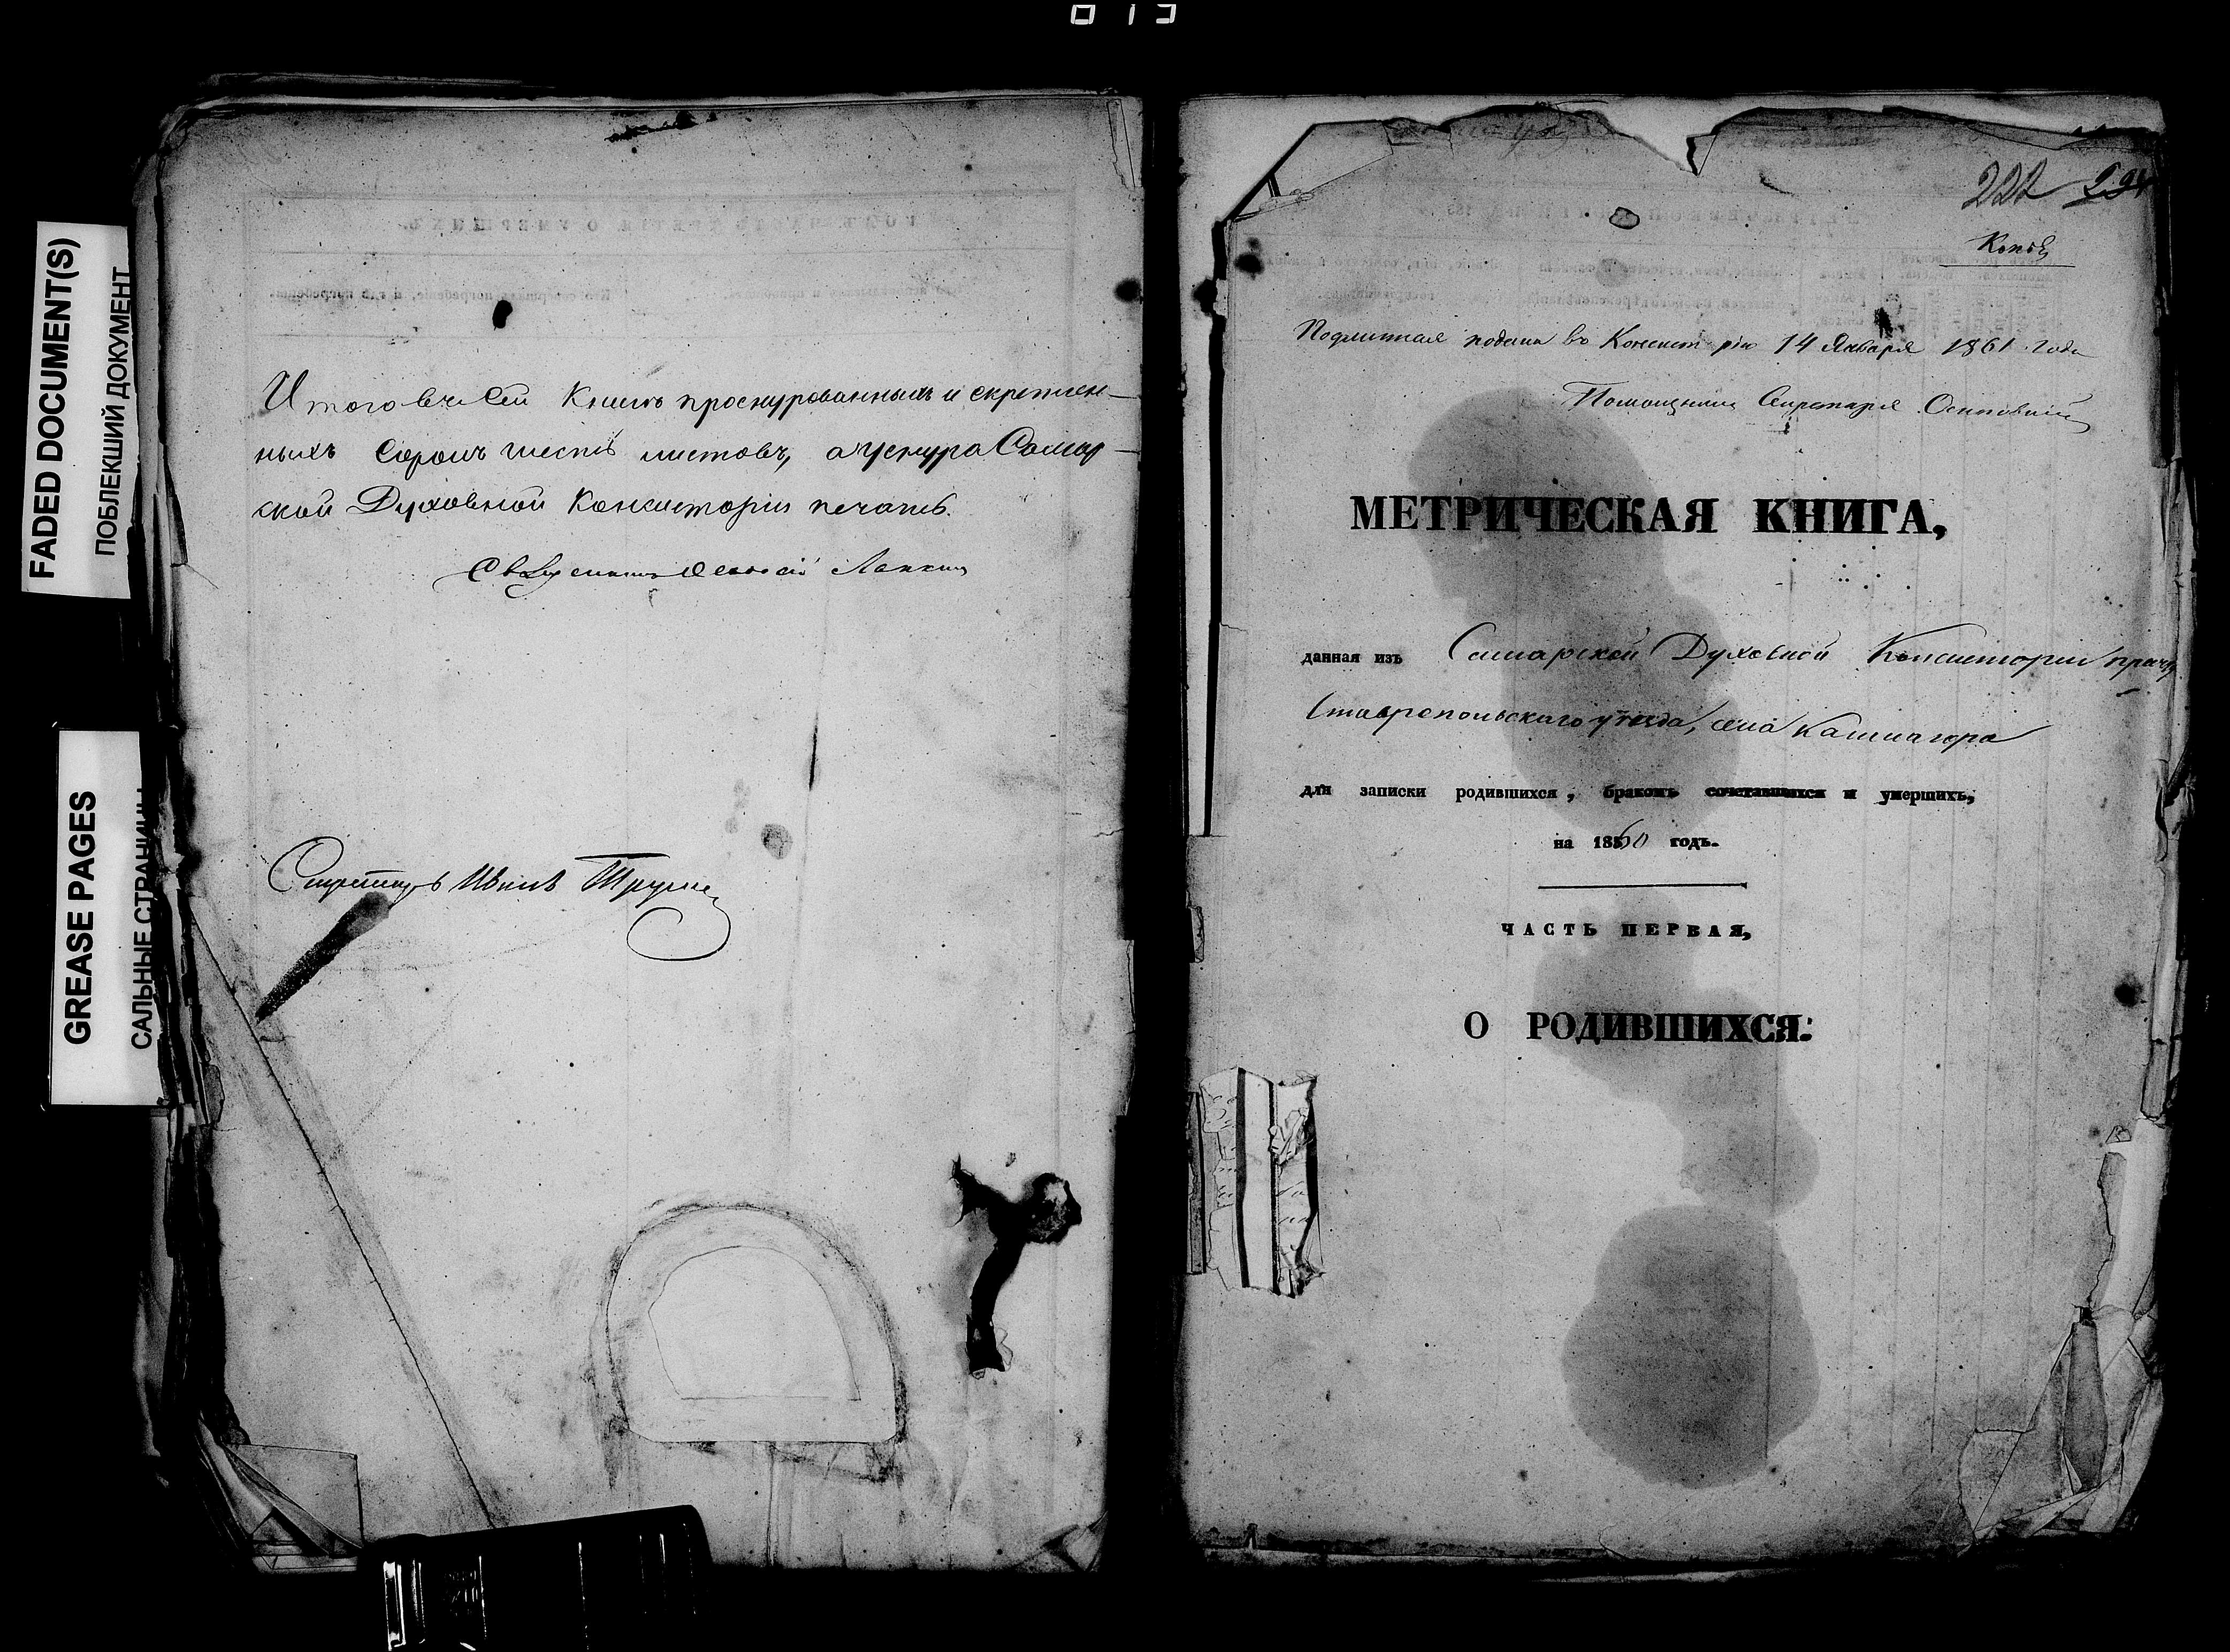 FADED DOCUMENT(S)
ПОБЛЕКШИЙ ДОКУМЕНТ
GREASE PAGES
САЛЬНЫЕ СТРАНИЦЫ
Итого въ сей книгѣ прошнурованныхъ и скрѣплен-
ныхъ сорокъ шесть листовъ, а у шнура Самар-
ской Духовной Консисторіи печать.
Священникъ Лапкинъ
Секретарь Иванъ
222
Копія
Подлинная подана въ Консисторію 14 Января 1861 года
Помощникъ Секретаря
МЕТРИЧЕСКАЯ КНИГА,
данная изъ Самарской Духовной Консисторіи причту
Ставропольскаго уѣзда, села
для записки родившихся, бракомъ сочетавшихся и умершихъ,
на 1860 годъ.
ЧАСТЬ ПЕРВАЯ,
О РОДИВШИХСЯ.